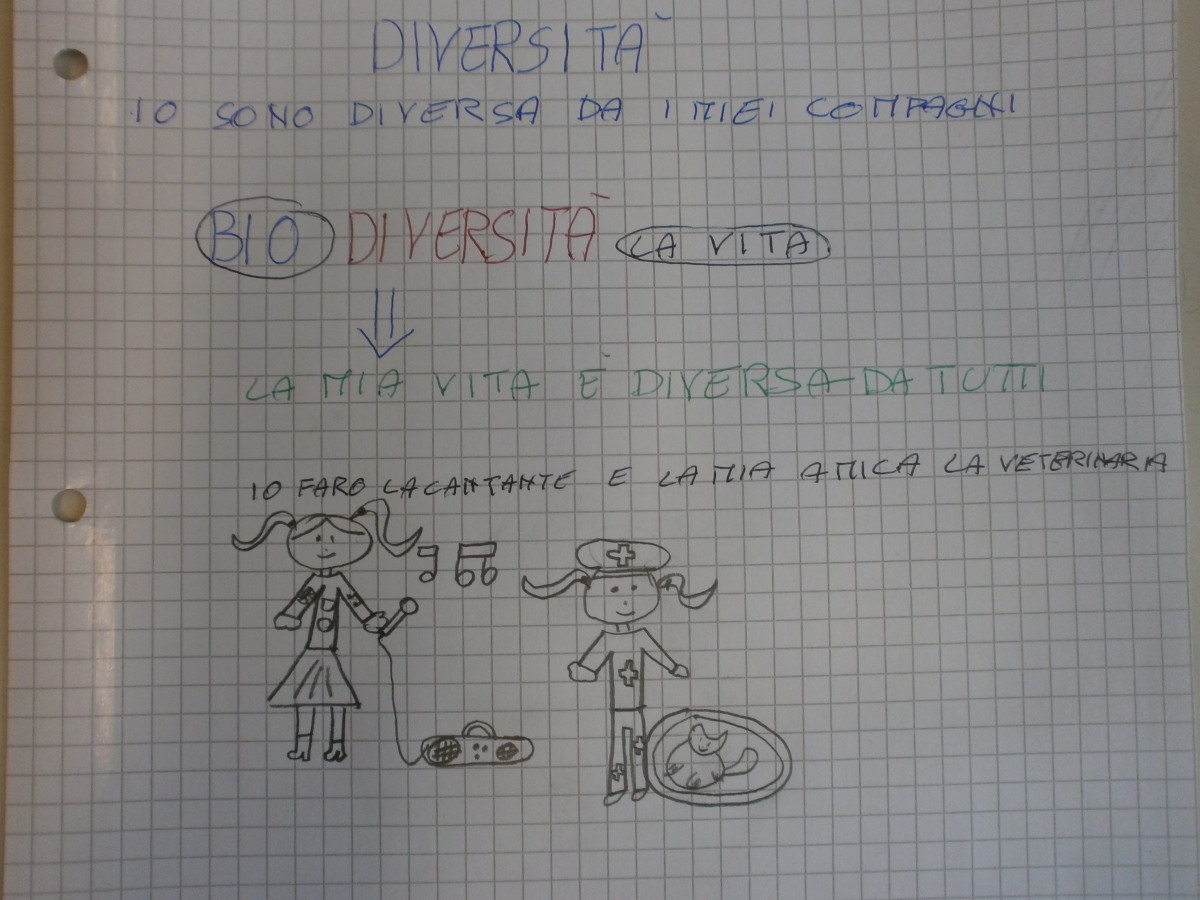 DIVERSITÀ
IO SONO DIVERSA DA I MIEI COMPAGNI
BIO DIVERSITÀ LA VITA
LA MIA VITA È DIVERSA DA TUTTI
IO FARO LA CANTANTE E LA MIA AMICA LA VETERINARIA